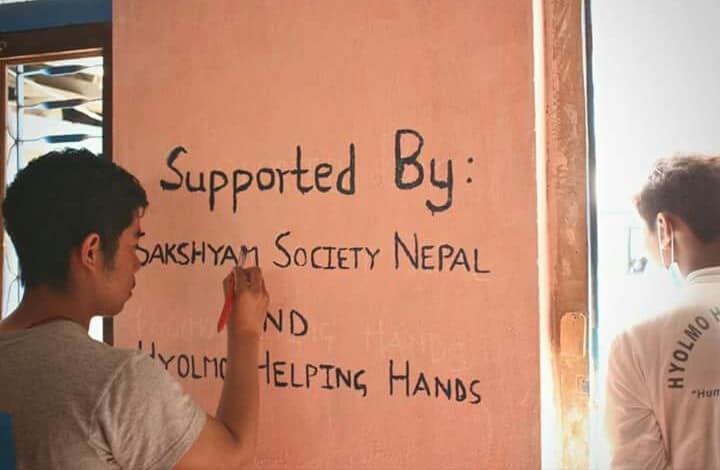 Supported By:
SAKSHYAM SOCIETY NEPAL
AND
HYOLMO HELPING HANDS
HYOLMO H
"Hum